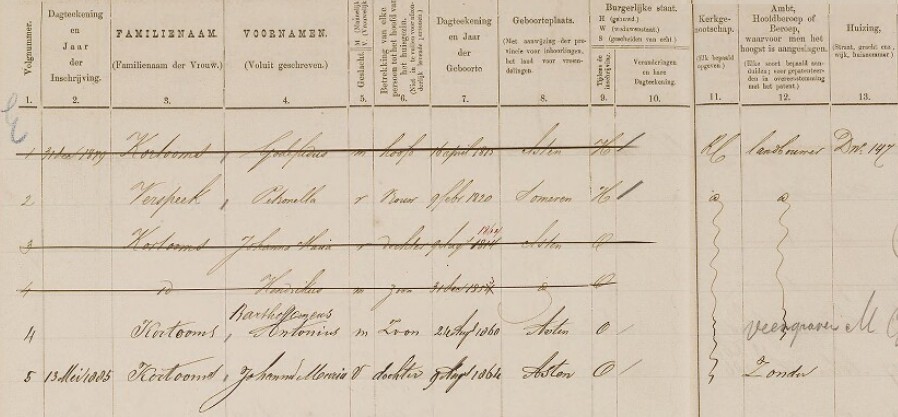 Volgnummer.
Dagteekening en Jaar der Inschrijving.
FAMILIENAAM. (Familienaam der Vrouw.)
VOORNAMEN. (Voluit geschreven.)
Geslacht. M (Mannelijk) V (Vrouwelijk)
Betrekking van elke persoon tot het hoofd van het huisgezin.
Dagteekening en Jaar der Geboorte
Geboorteplaats. (Met aanwijzing der provincie voor inboorlingen, het land voor vreemdelingen.
Burgerlijke staat.
H (gehuwd.)
W (weduwenstaat.)
S (gescheiden van echt.)
Tijdens de inschrijving.
Veranderingen en hare Dagteekening.
Kerkgenootschap. (Elk bepaald opgeven.)
Ambt, Hoofdberoep of Beroep, waarvoor men het hoogst is aangeslagen.
Huizing,
1. 2. 3. 4. 5. 6. 7. 8. 9. 10. 11. 12. 13.
1 Kortooms Godefridus m hoofd 16 april Asten H RC landbouwer D no. 147
2 Verspeek Petronella v Vrouw 9 febr 1820 Someren H
3 Kortooms Johanna Maria v dochter 9 Aug 1864 Asten O
4 id Hendrikus m zoon 31 O
Bartholomeus
4 Kortooms, Antonius m Zoon 24 Aug 1860 Asten O veengraver M
5 13 Mei 1885 Kortooms, Johanna Maria V dochter 9 Aug 1864 Asten O Zonder